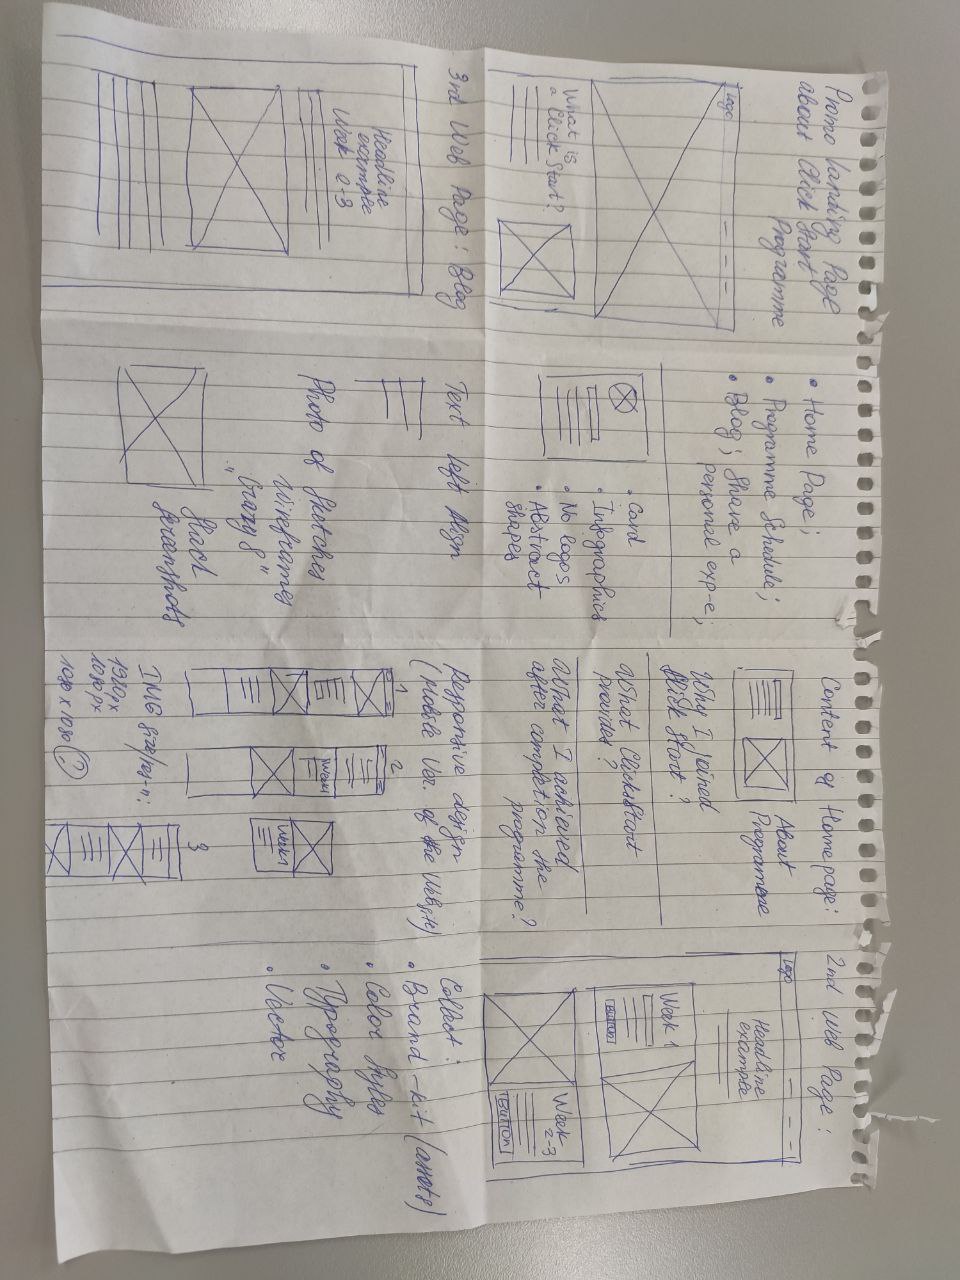 Promo Landing Page
about Click Start
Programme
Logo
What is
a Click Start?
• Home Page;
• Programme Schedule;
• Blog; Share a
personal exp-e;
• Card
• Infographics
• No logos
• Abstract
shapes
Content of Homepage:
About
Programme
Why I joined
Click Start?
What ClickStart
provides?
What I achieved
after completion the
programme?
2nd Web Page:
Logo
Headline
example
Week 1
Button
Week
2-3
BUTTON
3rd Web Page: Blog
Headline
example
Week 0-3
Text left Align
Photo of Sketches
Wireframes
"Crazy 8"
Slack
Screenshots
Responsive design
(Mobile Ver. of the Website)
1
2
Week1
Week1
3
IMG size/res-n:
1920px
1080px
1080 x 1080 ?
Collect:
• Brand-kit (assets)
• Color Styles
• Typography
• Vector